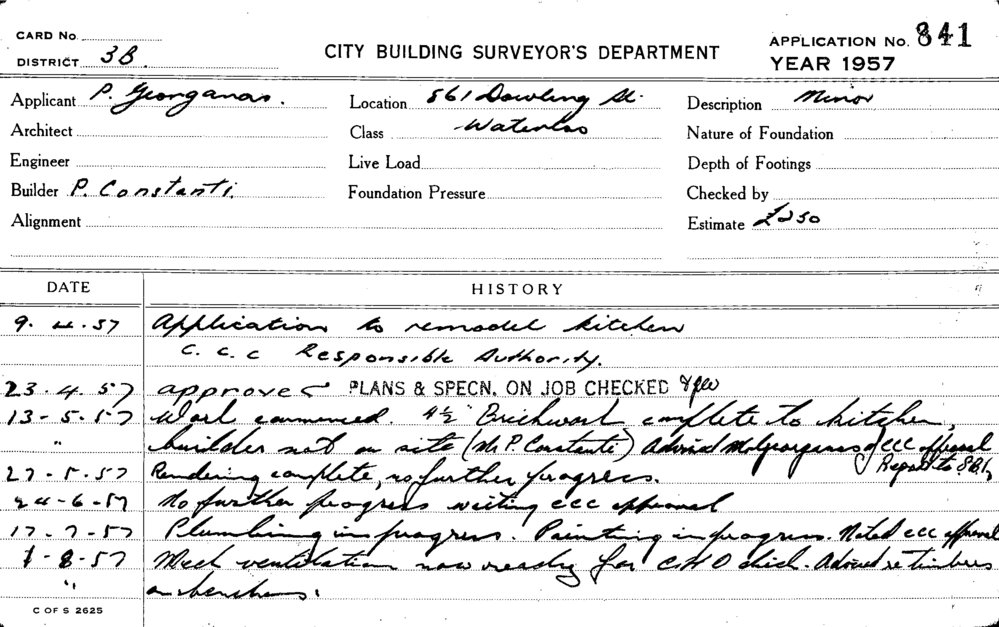 CARD No.
DISTRICT 3B.
CITY BUILDING SURVEYOR'S DEPARTMENT
APPLICATION No. 841
YEAR 1957
Applicant P. Georganas. Location 861 Dowling St. Description Minor
Architect Class Waterloo Nature of Foundation
Engineer Live Load Depth of Footings
Builder P. Constanti. Foundation Pressure Checked by
Alignment Estimate £250
DATE HISTORY
9. 4. 57 Application to remodel kitchen
C. C. C Responsible Authority.
23. 4. 57 approved PLANS & SPECN. ON JOB CHECKED
13 - 5 - 57 Work commenced. 4½" Brickwork complete to kitchen,
" builder not on site (Mr P. Constante) Advised Mr Georganas of CCC approval
Report to
27 - 5 - 57 Rendering complete, no further progress.
24 - 6 - 57 No further progress waiting CCC approval
17 - 7 - 57 Plumbing in progress. Painting in progress. Noted CCC approval
1 - 8 - 57 Mech ventilation now ready for C.H.O check. Advised re timbers
" on benches.
C OF S 2625